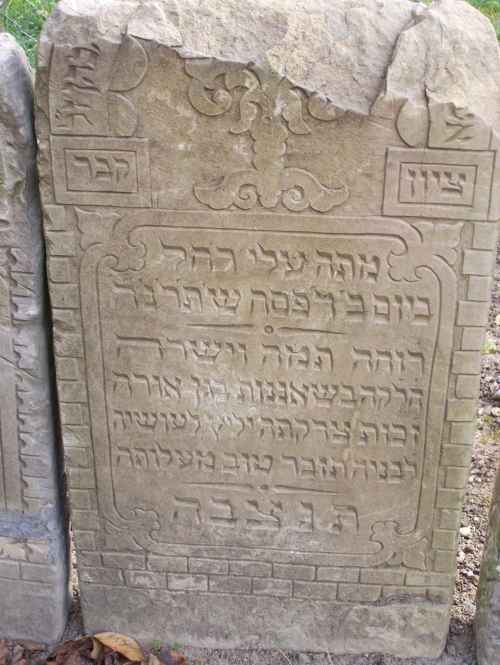 ציון קבר
מתה עלי רחל
ביום ב' ד' פסח ש' תרנה
רוחה תמה וישרה
חלקה בשאננות בגן אורה
זכות צדקתה יליץ לעושיה
לבניה תזכר טוב מעלותה
תנצבה